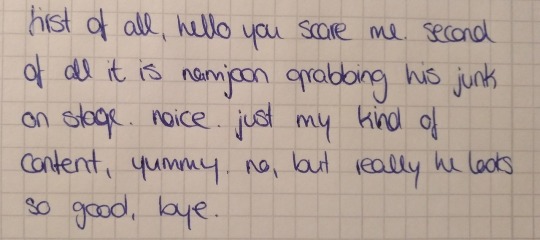 first of all, hello you scare me. second
of all it is namjoon grabbing his junk
on stage. noice. just my kind of
content, yummy. no, but really he looks
so good, bye.